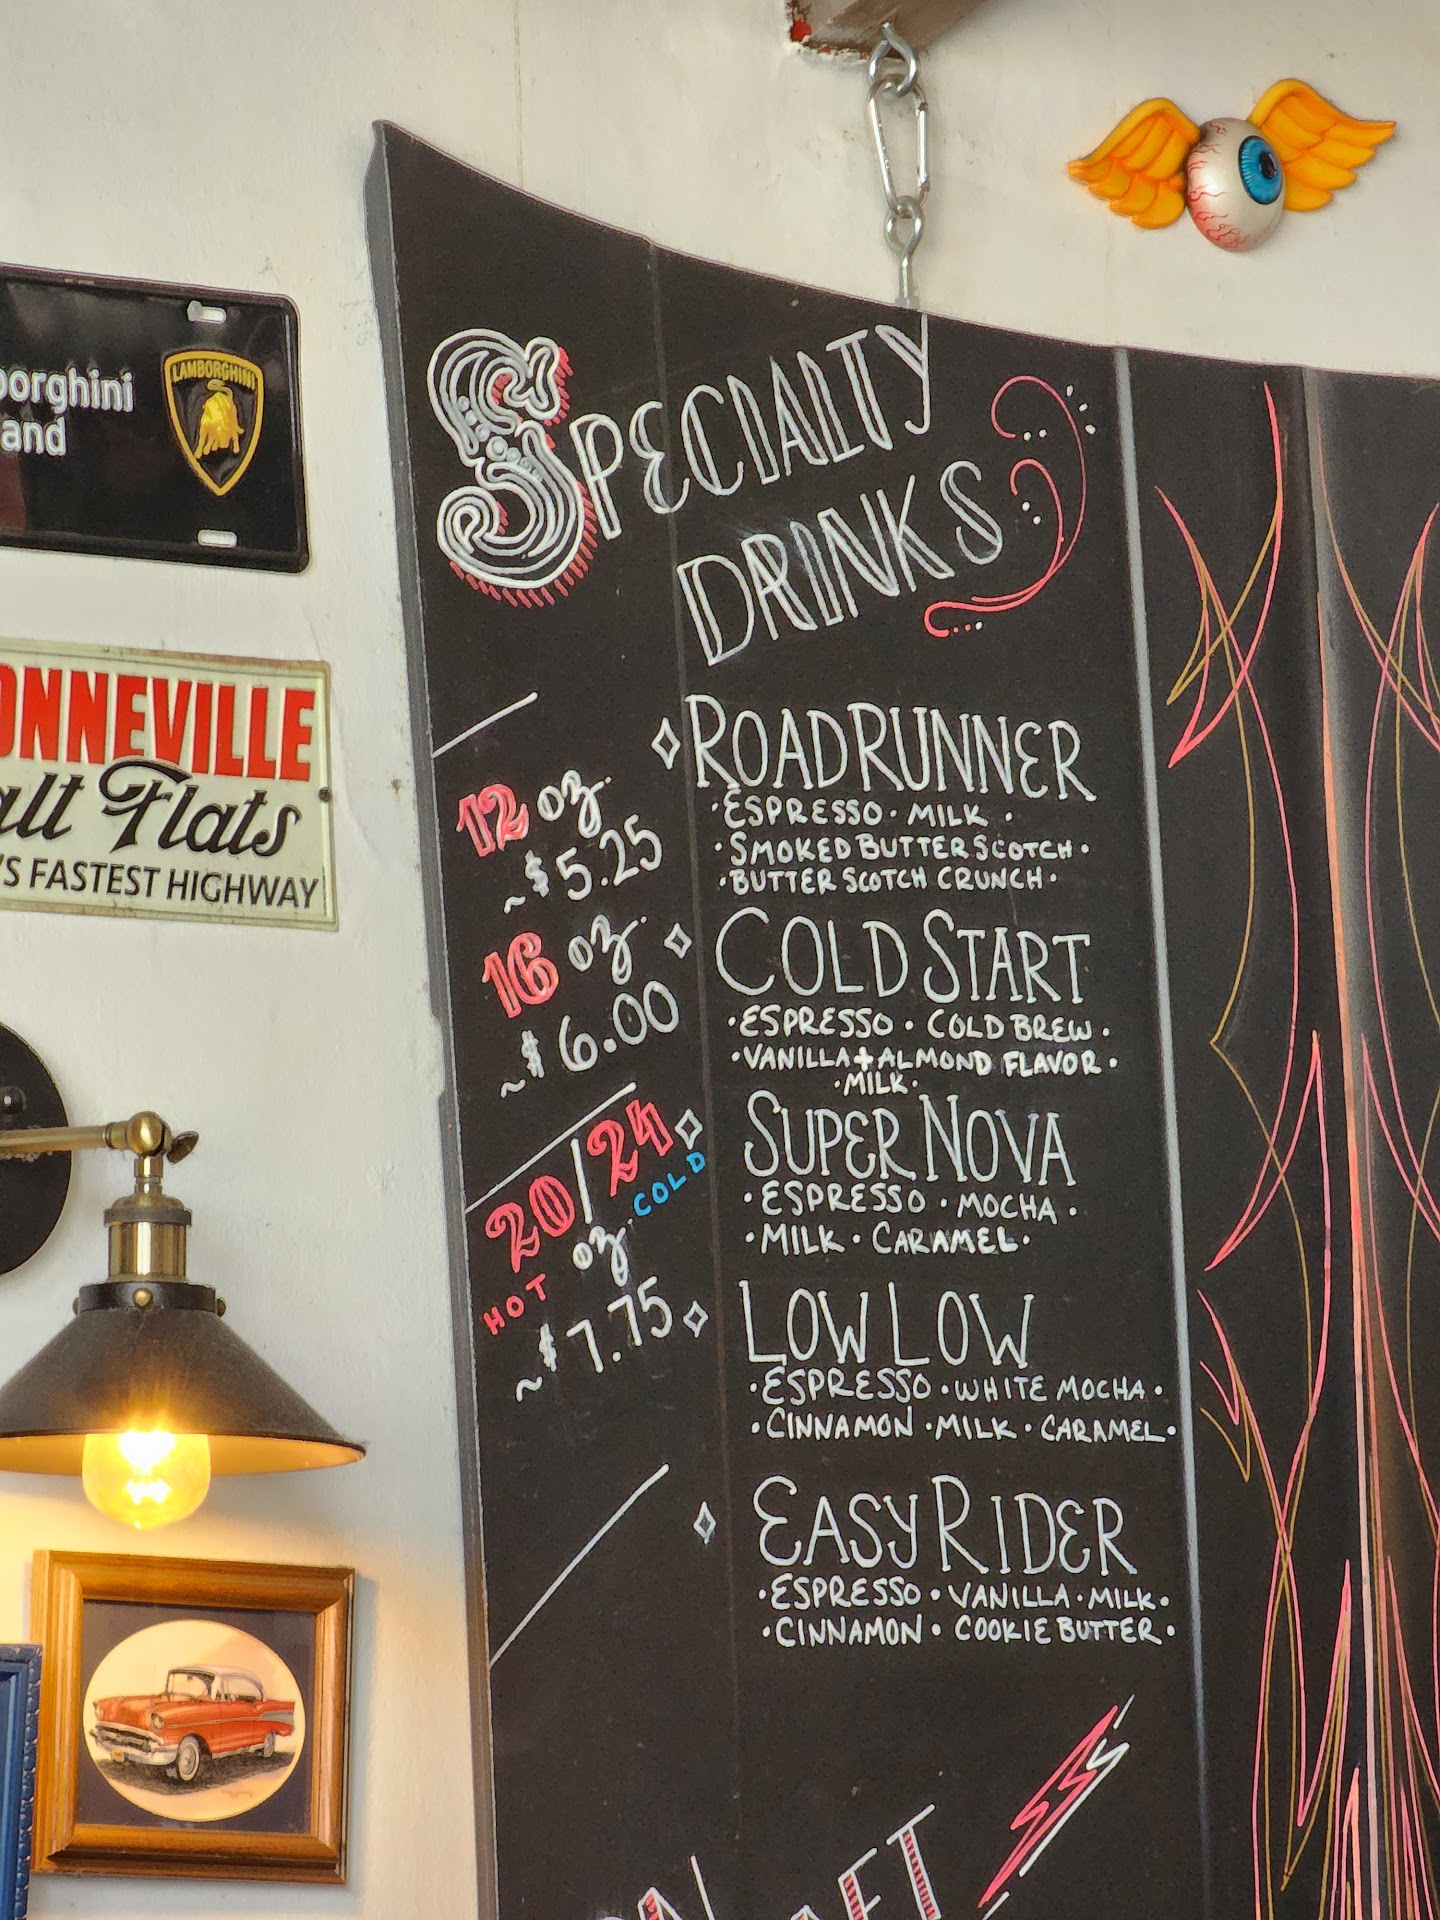 LAMBORGHINI
SPECIALTY
DRINKS
ONNEVILLE
Flats
'S FASTEST HIGHWAY
12 oz.
~$5.25
16 oz.
~$6.00
20/24
HOT oz. COLD
~$7.75
ROADRUNNER
·ESPRESSO·MILK·
·SMOKED BUTTERSCOTCH·
·BUTTERSCOTCH CRUNCH·
COLD START
·ESPRESSO·COLD BREW·
·VANILLA+ALMOND FLAVOR·
·MILK·
SUPER NOVA
·ESPRESSO·MOCHA·
·MILK·CARAMEL·
LOW LOW
·ESPRESSO·WHITE MOCHA·
·CINNAMON·MILK·CARAMEL·
EASY RIDER
·ESPRESSO·VANILLA·MILK·
·CINNAMON·COOKIE BUTTER·